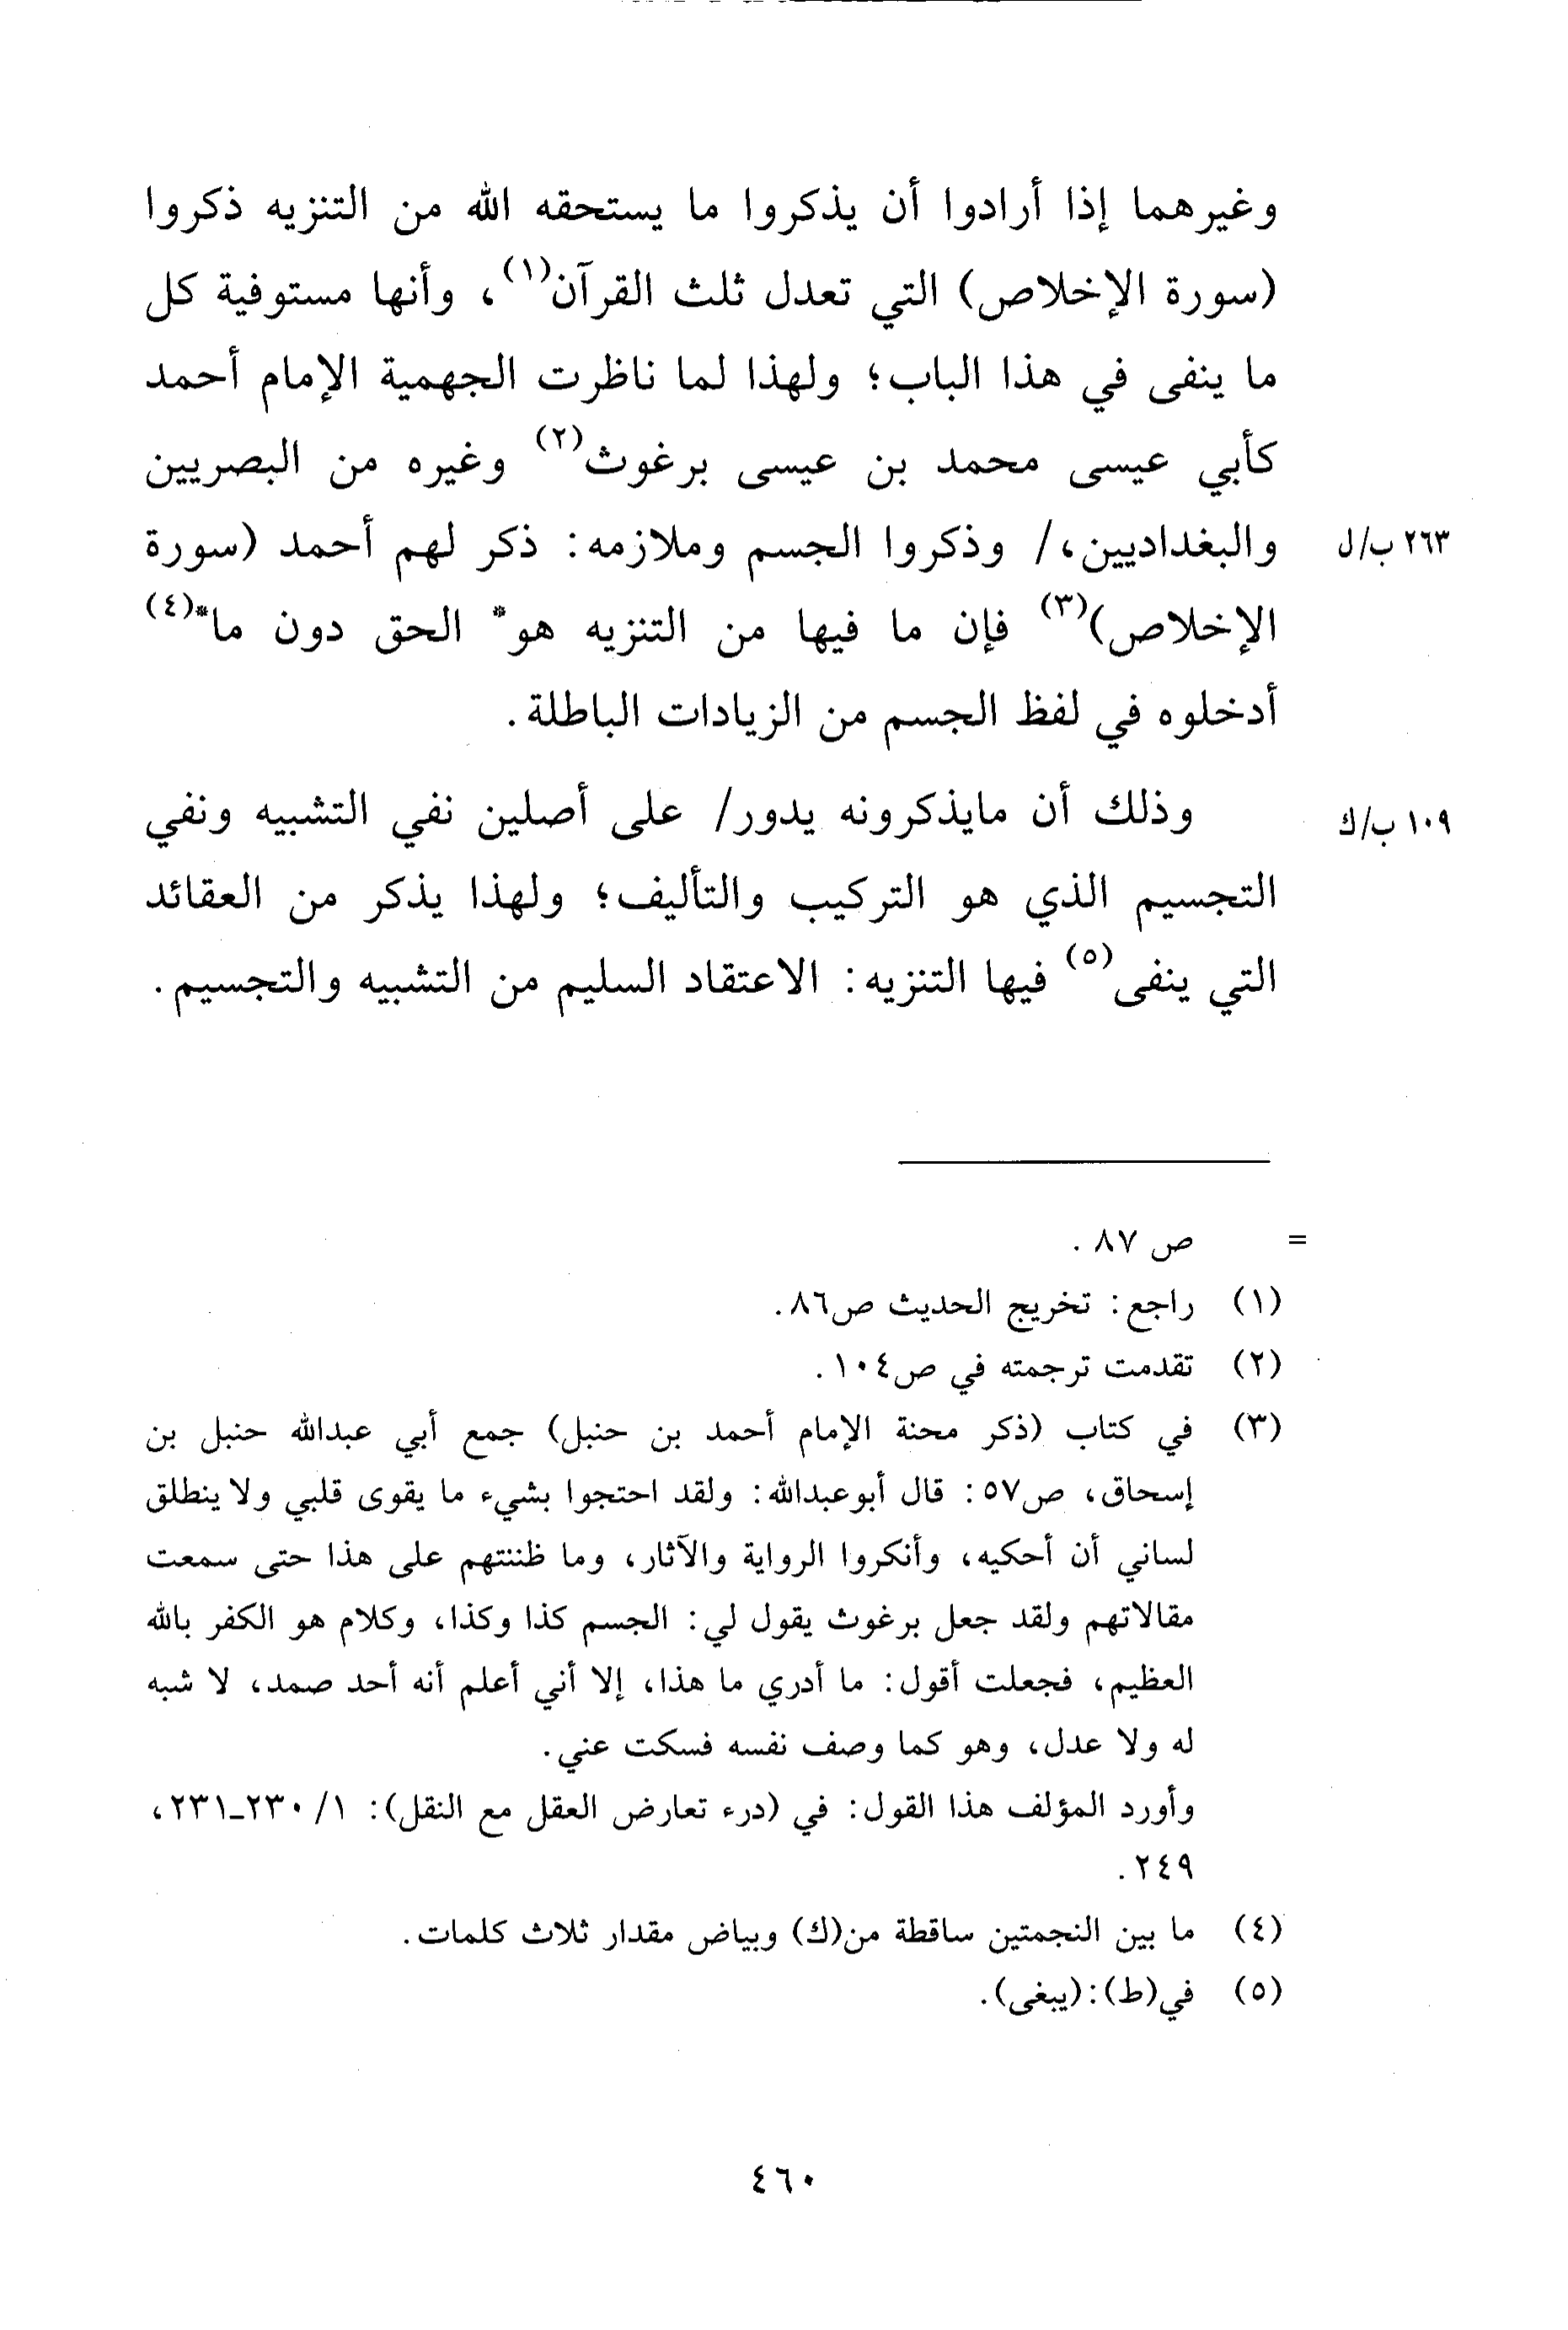 وغيرهما إذا أرادوا أن يذكروا ما يستحقه الله من التنزيه ذكروا
(سورة الإخلاص) التي تعدل ثلث القرآن(١)، وأنها مستوفية كل
ما ينفى في هذا الباب؛ ولهذا لما ناظرت الجهمية الإمام أحمد
كأبي عيسى محمد بن عيسى برغوث(٢) وغيره من البصريين
والبغداديين،/ وذكروا الجسم وملازمه: ذكر لهم أحمد (سورة ٢٦٣ ب/ل
الإخلاص)(٣) فإن ما فيها من التنزيه هو* الحق دون ما*(٤)
أدخلوه في لفظ الجسم من الزيادات الباطلة.
وذلك أن مايذكرونه يدور/ على أصلين نفي التشبيه ونفي ١٠٩ ب/ك
التجسيم الذي هو التركيب والتأليف؛ ولهذا يذكر من العقائد
التي ينفى(٥) فيها التنزيه: الاعتقاد السليم من التشبيه والتجسيم.
= ص ٨٧ .
(١) راجع: تخريج الحديث ص٨٦.
(٢) تقدمت ترجمته في ص١٠٤ .
(٣) في كتاب (ذكر محنة الإمام أحمد بن حنبل) جمع أبي عبدالله حنبل بن
إسحاق، ص٥٧: قال أبوعبدالله: ولقد احتجوا بشيء ما يقوى قلبي ولا ينطلق
لساني أن أحكيه، وأنكروا الرواية والآثار، وما ظننتهم على هذا حتى سمعت
مقالاتهم ولقد جعل برغوث يقول لي: الجسم كذا وكذا، وكلام هو الكفر بالله
العظيم، فجعلت أقول: ما أدري ما هذا، إلا أني أعلم أنه أحد صمد، لا شبه
له ولا عدل، وهو كما وصف نفسه فسكت عني.
وأورد المؤلف هذا القول: في (درء تعارض العقل مع النقل): ١/ ٢٣٠-٢٣١،
٢٤٩.
(٤) ما بين النجمتين ساقطة من(ك) وبياض مقدار ثلاث كلمات.
(٥) في(ط):(يبغى).
٤٦٠